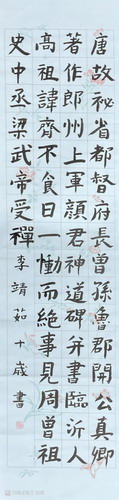 唐故祕省都督府長曾孫魯郡開公真卿
著作郎州上軍顏君神道碑并書臨沂人
高祖諱齊不食日一慟而絕事見周曾祖
史中丞梁武帝受禪 李靖茹十歲書